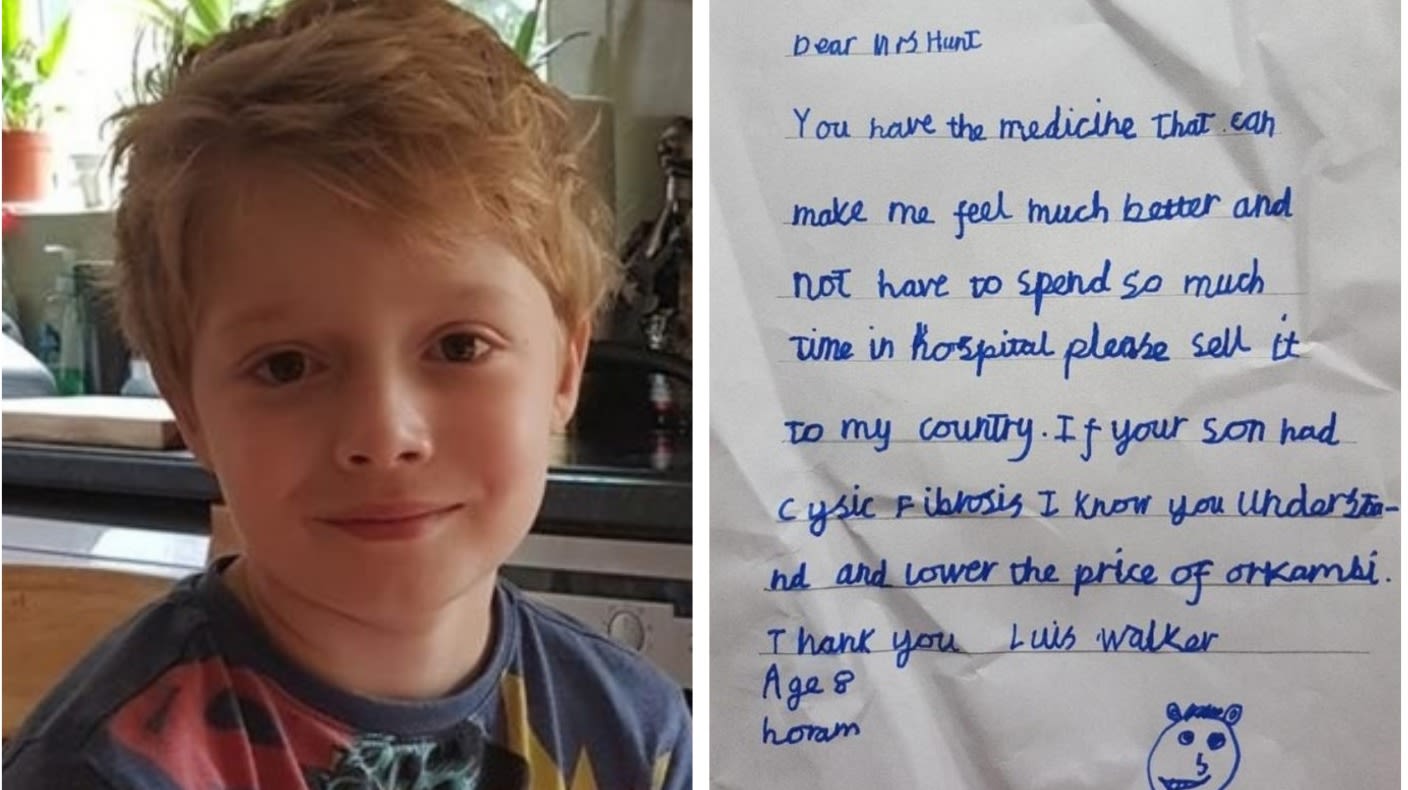 Dear Mrs Hunt
You have the medicine that can
make me feel much better and
not have to spend so much
time in hospital please sell it
to my country. If your son had
cysic Fibrosis I know you understa-
nd and lower the price of orkambi.
Thank you Luis Walker
Age 8
horam